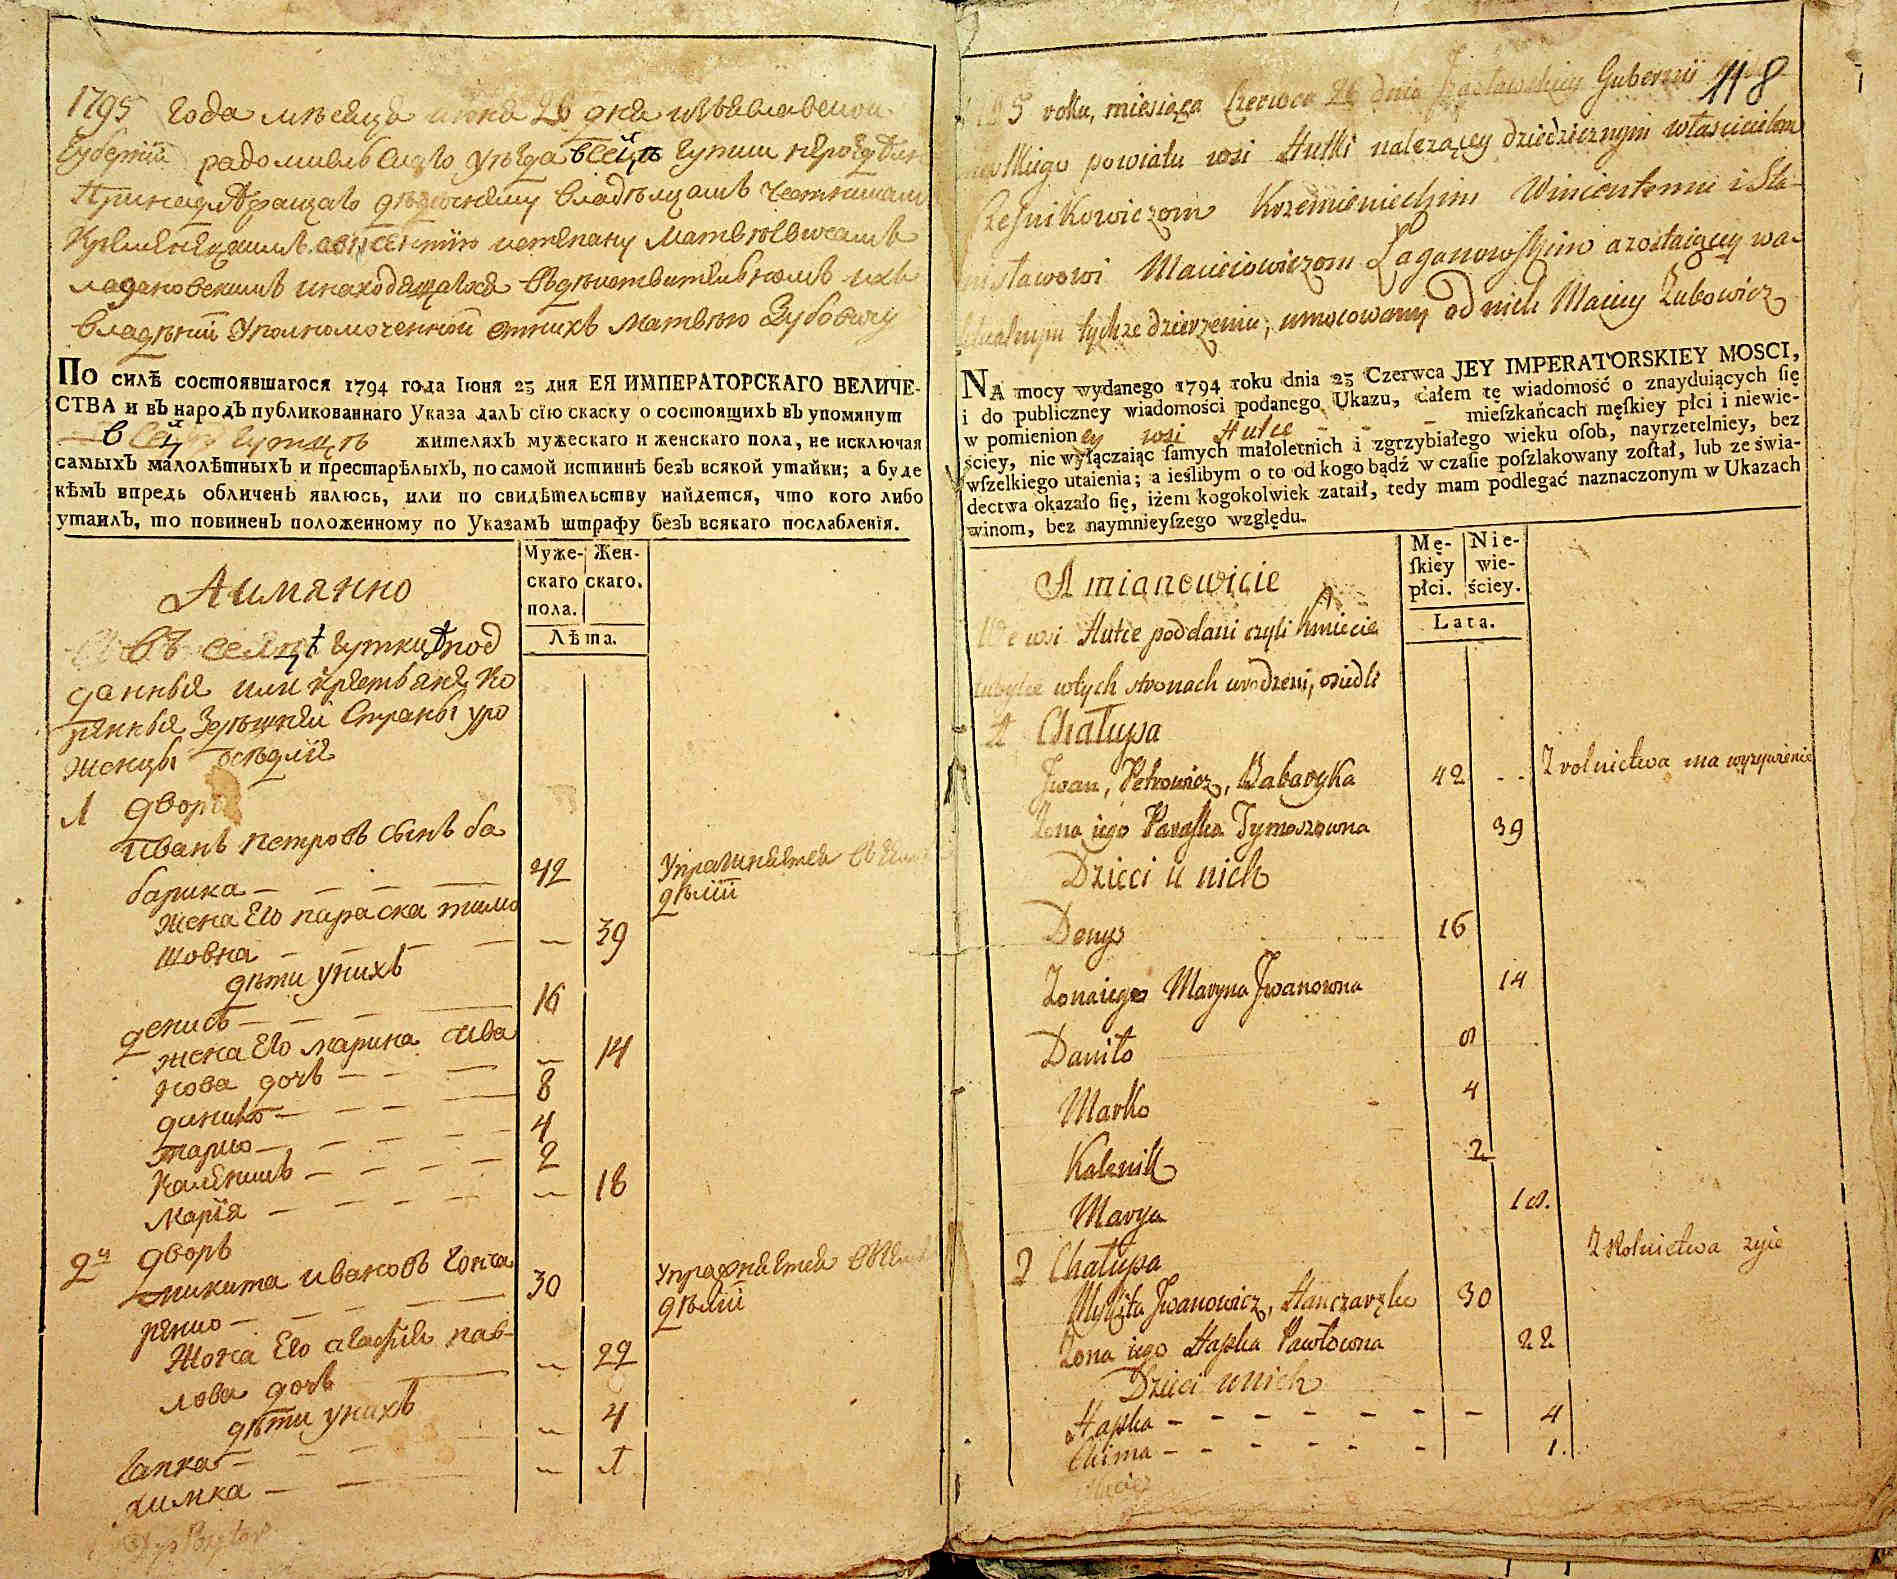 1795 года мѣсяца июня 26 дня изъяславской
Губернїи радомысльскаго уѣзда всей
Принадлѣжащаго владѣльцамъ
матвѣевичамъ
находящагося вдѣйствительномъ ихъ
владѣнїи Уполномоченной отнихъ Матвѣю Зубовичу
ПО силѣ состоявшагося 1794 года Іюня 23 дня ЕЯ ИМПЕРАТОРСКАГО ВЕЛИЧЕ-
СТВА и въ народъ публикованнаго Указа далъ сїю скаску о состоящихъ въ упомянут
жителяхъ мужескаго и женскаго пола, не исключая
самыхъ малолѣтныхъ и престарѣлыхъ, по самой истиннѣ безъ всякой утайки; а буде
кѣмъ впредь обличенъ явлюсь, или по свидѣтельству найдется, что кого либо
утаилъ, то повиненъ положенному по Указамъ штрафу безъ всякаго послабленїя.
Муже-
скаго
пола.
Жен-
скаго.
Лѣта.
Аимянно
въ гутки под
данныя или крѣстьянѣ ко
рѣнныя Страны уро
женцы осѣдлїи
1 дворъ
Иванъ петровъ сынъ ба
барика — 42
жена его параска тимо
шовна — 39
дѣти унихъ
денисъ — 16
жена его марина ива
нова дочь — 14
данило — 8
марко — 4
каленикъ — 2
марїя — 18
2й дворъ
микита ивановъ гонча
рѣнко — 30
жона его агафия пав-
лова дочь — 22
дѣти унихъ
гапка — 4
химка — 1
118
1795 roku, miesiąca Czerwca 26 dnia Izasławskiey Gubernii
powiatu wsi Hutki należącey dziedzicznym właścicielom
Czesnikowiczom Krzemienieckim Wincentemu i Sta-
nisławowi Maciejowiczom Łaganowskim a zostaiącey wa-
ktualnym tychże dzierżeniu, umocowany od nich Maciey Zubowicz
NA mocy wydanego 1794 roku dnia 23 Czerwca JEY IMPERATORSKIEY MOSCI,
i do publiczney wiadomości podanego Ukazu, dałem tę wiadomość o znayduiących ſię
w pomienioney wsi Hutce - - - mieſzkańcach męſkiey płci i niewie-
ściey, nie wyłączaiąc ſamych małoletnich i zgrzybiałego wieku oſob, nayrzetelniey, bez
wſzelkiego utaienia; a ieślibym o to od kogo bądź w czaſie poſzlakowany został, lub ze świa-
dectwa okazało ſię, iżem kogokolwiek zataił, tedy mam podlegać naznaczonym w Ukazach
winom, bez naymnieyſzego względu.
Mę-
ſkiey
płci.
Nie-
wie-
ściey.
Lata.
A mianowicie
We wsi Hutce poddani czyli kmiecie
tubylce wtych stronach urodzeni, osiedli
1 Chałupa
Jwan, Petrowicz, Babaryka 42 - - Z rolnictwa ma wyzywienie
Zona iego Paraska Tymoszowna 39
Dzieci u nich
Denys 16
Zona iego Maryna Jwanowna 14
Daniło 8
Marko 4
Kalenik 2
Marya 18.
2 Chałupa Z Rolnictwa zyie
Mykita Jwanowicz, Hanczaręko 30
Zona iego Hapka Pawłowna 22
Dzieci unich
Hapka - - - - - - - 4
Chima - - - - - - 1.